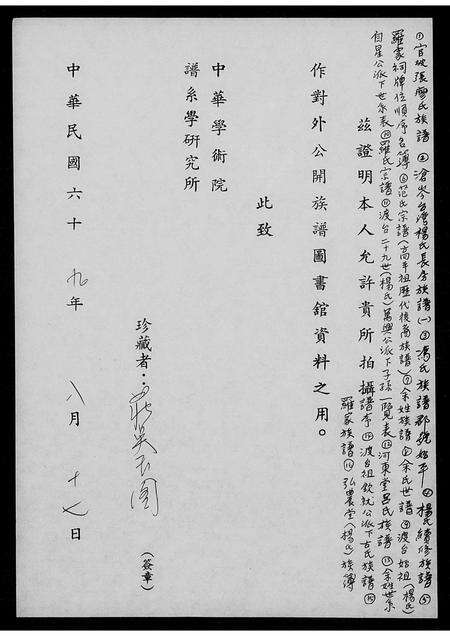 ①官坡張廖氏族譜 ②滄岑台灣楊氏長房族譜(一) ③馮氏族譜郡號始平 ④楊氏續修族譜 ⑤
羅家祠牌位順序名簿 ⑥范氏宗譜(高平祖歷代後裔族譜) ⑦余姓族譜 ⑧余氏世譜 ⑨渡台始祖(楊氏)
自星公派下世系表 ⑩羅氏宗譜 ⑪渡台二十九世(楊氏)萬興公派下子孫一覽表 ⑫河東堂呂氏族譜 ⑬余姓世系
茲證明本人允許貴所拍攝譜李 ⑭渡台祖欽就公派下古氏族譜 ⑮
羅家族譜 ⑯弘農堂(楊氏)族簿
作對外公開族譜圖書館資料之用。
此致
中華學術院
譜系學研究所
珍藏者：莊吳玉圖
(簽章)
中華民國六十九年八月十七日